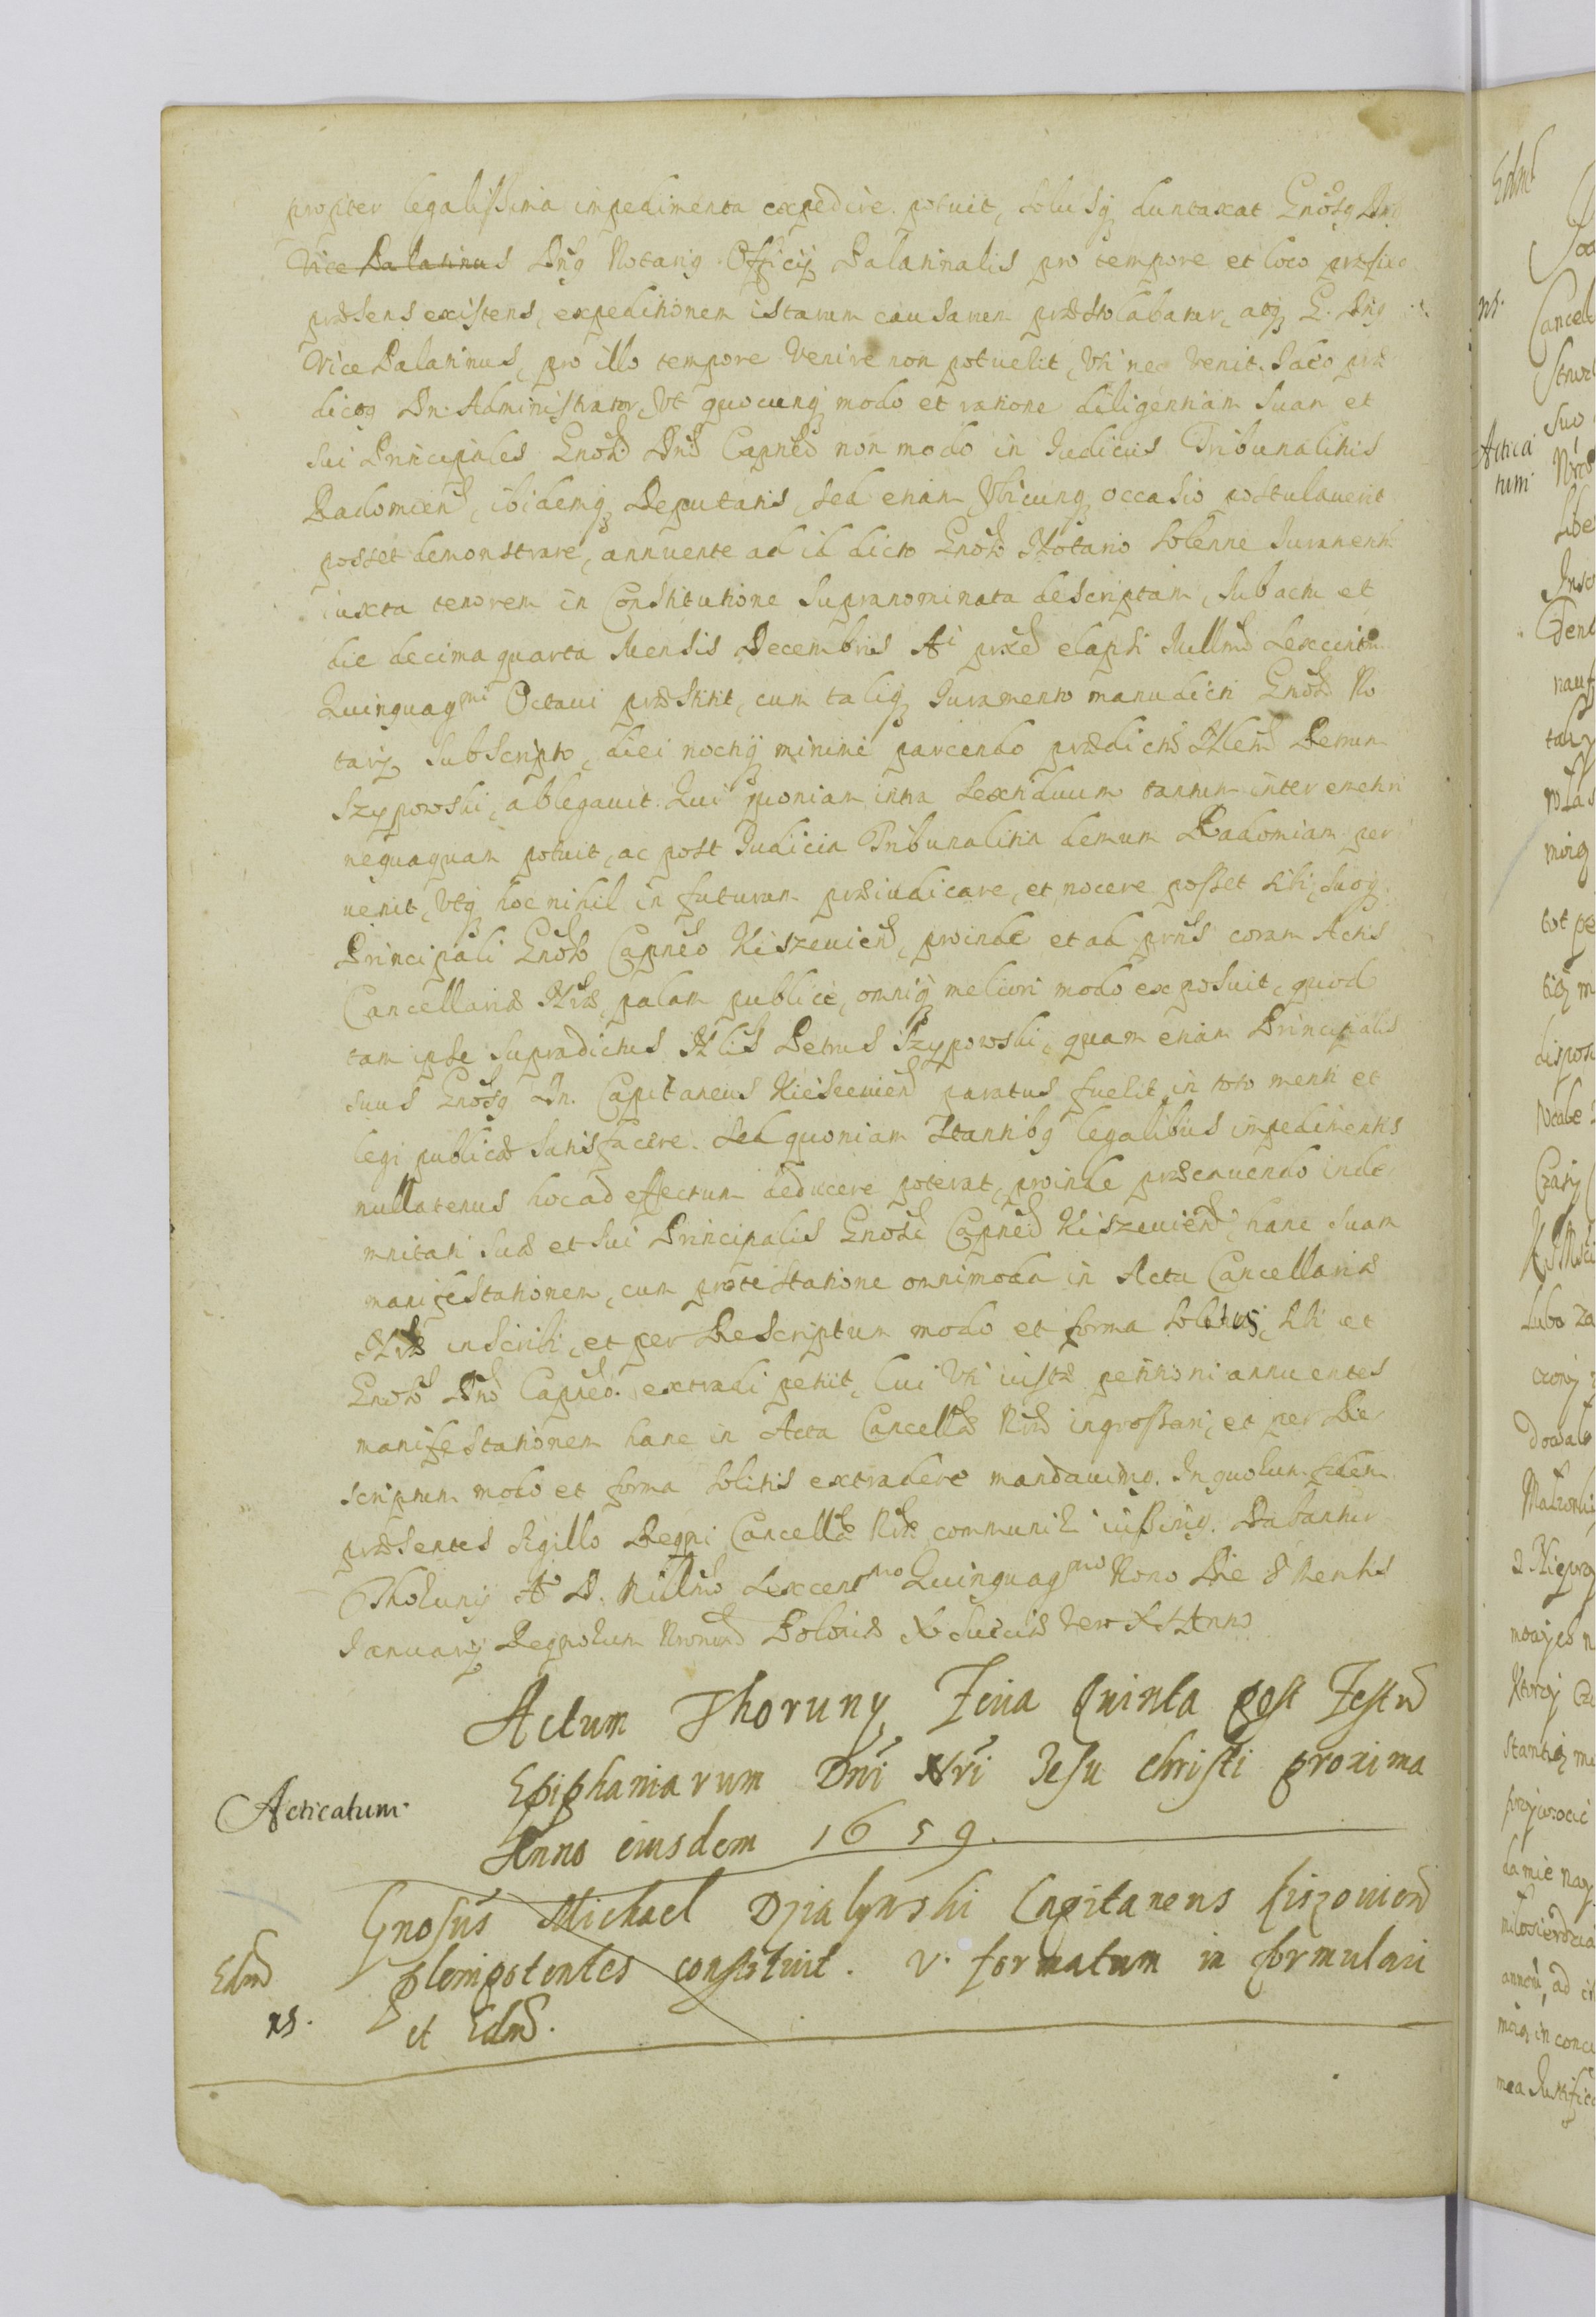 propter legalissima impedimenta expedire potuit, solusq duntaxat Gnosq Dn
Vice Palatinus Dnq Notariq Officij Palatinalis pro tempore et loco præfixo
præsens existens, expeditionem istarum causarum præstolabatur, atq G. Dnq
Vice Palatinus, pro illo tempore venire non potuerit, Uti nec venit. Ideo præ
dictq Dn. Administrator, Ut quocunq modo et ratione diligentiam suam et
sui Principales Gnosi Dni Capnei non modo in Judicijs Tribunalitijs
Radomien, ibidemq Deputatis, sed etiam Ubicunq occasio postulaverit
posset demonstrare, annuente ad id dicto Gnoso Notario solenne Iuramentu
iuxta tenorem in Constitutione supranominata descriptam, sub actu et
die decima quarta Mensis Decembris Ai præd elapsi Millmi Sexcentmi
Quinquagmi Octaui præstitit, cum taliq Iuramento manu dicti Gnosi No
tarij subscripto, diei noctiq minime parcendo prædictu Nlem Petrum
Szypowski, ablegauit. Qui quoniam intra sextiduum tantum inter emetiri
nequaquam potuit, ac post Judicia Tribunalitia demum Radomiam per
uenit, Utq hoc nihil in futurum præiudicare, et nocere posset sibi, suoq
Principali Gnoso Capneo Kiszeuien, proinde et ad prns coram Actis
Cancellariæ Nræ, palam publice, omniq meliori modo exposuit, quod
tam ipse supradictus Nlis Petrus Szypowski, quam etiam Principalis
suus Gnosq Dn. Capitaneus Kiszeuien paratus fuerit in toto menti et
legi publicæ satisfacere. Sed quoniam stantibq legalibus impedimentis
nullatenus hoc ad effectum deducere poterat, proinde præcauendo inde
mnitati suæ et sui Principalis Gnosi Capnei Kiszeuien, hanc suam
manifestationem, cum protestatione omnimoda in Acta Cancellariæ
Nræ inscribi, et per Descriptum modo et forma solitis, sibi et
Gnoso Dno Capneo extradi petijt, Cui Uti iustæ petitioni annuentes
manifestationem hanc in Acta Cancellæ Nræ ingrossari, et per De
scriptum modo et forma solitis extradere mandauimq. In quorum fidem
præsentes Sigillo Regni Cancellæ Nræ communiri iussimq. Dabantur
Thorunij Ao D. Millmo Sexcentmo Quinquagmo Nono Die 8 Mensis
Januarij Regnorum Nrorum Poloniæ X Sueciæ vero XI Anno
Actum Thoruny Feria Quinta post Festu
Epiphaniarum Dni Nri Jesu Christi proxima
Anno eiusdem 1659.
Acticatum.
Gnosus Michael Dzialynski Capitaneus Kiszouien
plenipotentes constituit. V. formatum in formulari
et Edm.
Edm
ns.